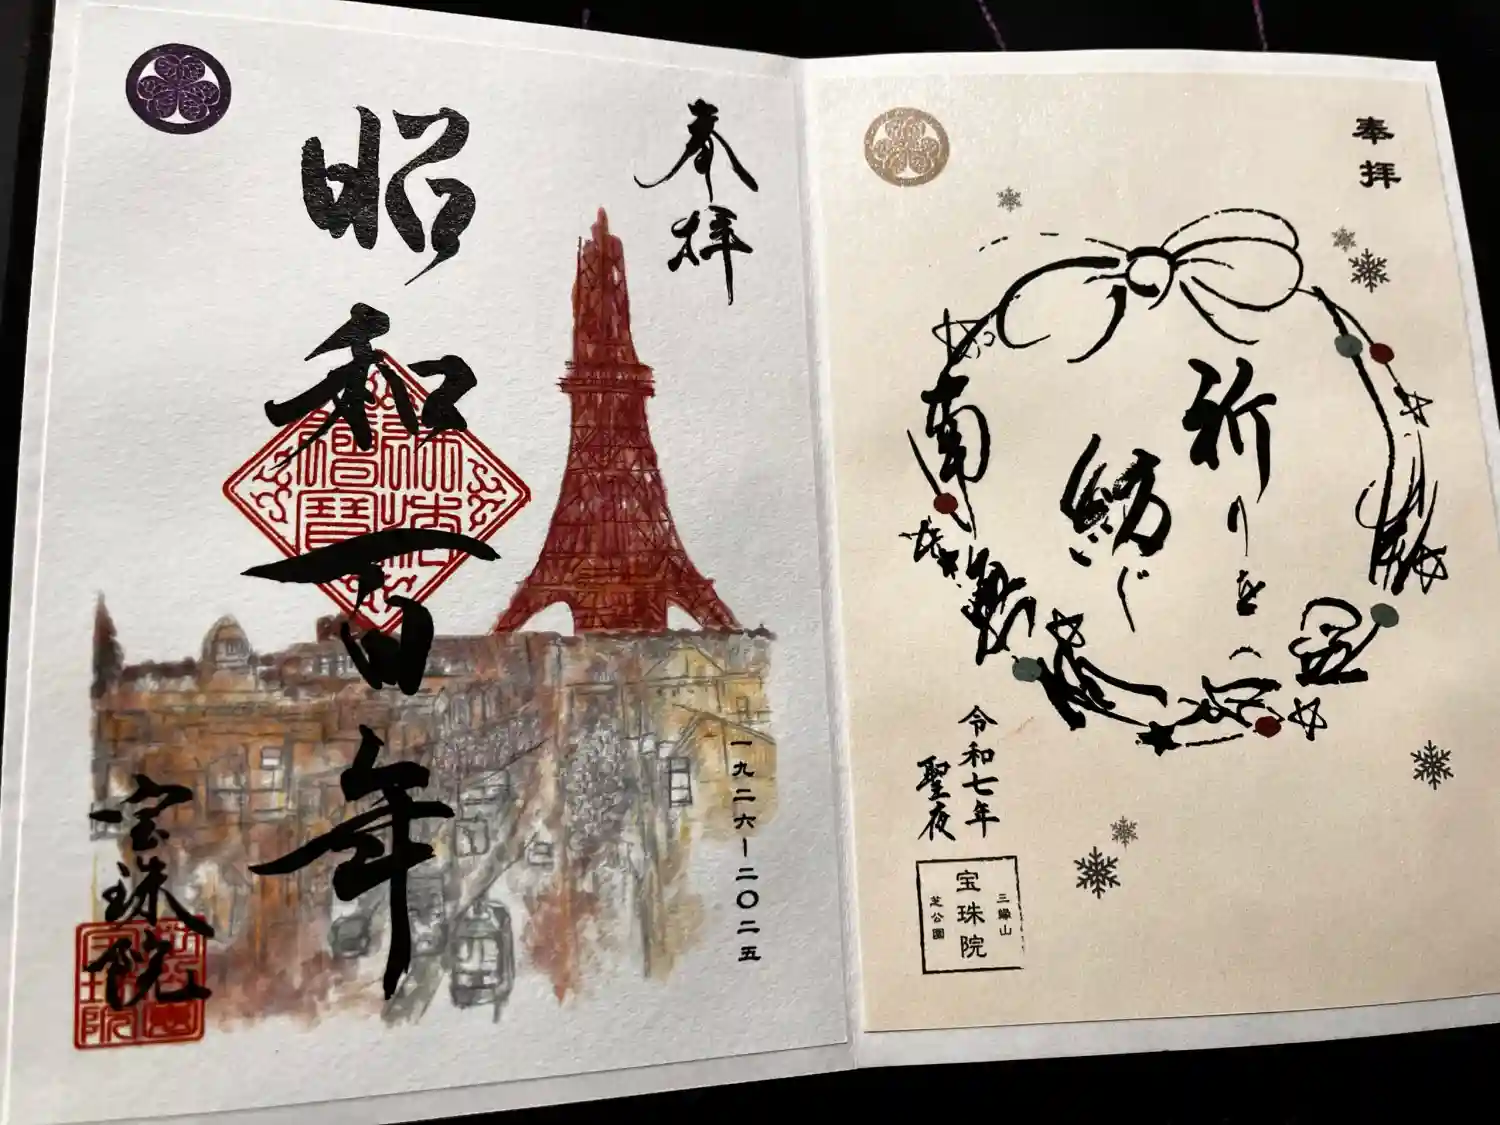 奉拝
昭和百年
一九二六ー二〇二五
宝珠院
奉拝
祈りを
紡ぐ
南
無
令和七年
聖夜
三縁山
宝珠院
芝公園